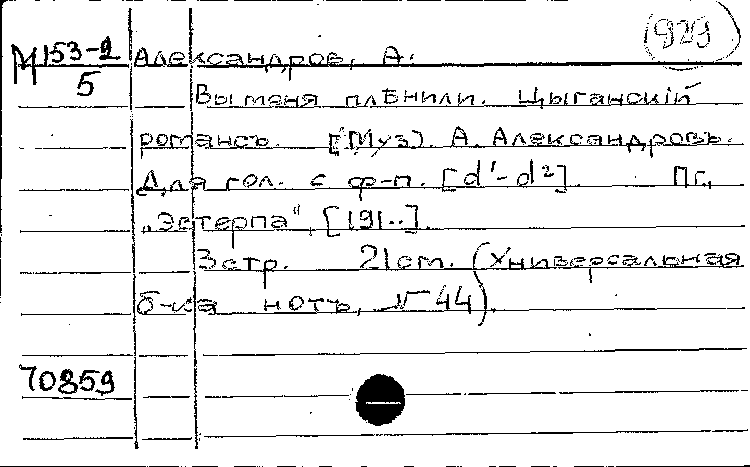 929
М153-2 Александров, А.
5
Вы меня плѣнили. Цыганскiй
романсъ. [Муз]. А. Александровъ.
Для гол. с ф-п. [d¹-d²]. Пг.,
„Эвтерпа", [191..].
3 стр. 21 см. (Универсальная
б-ка нотъ, № 44).
70859